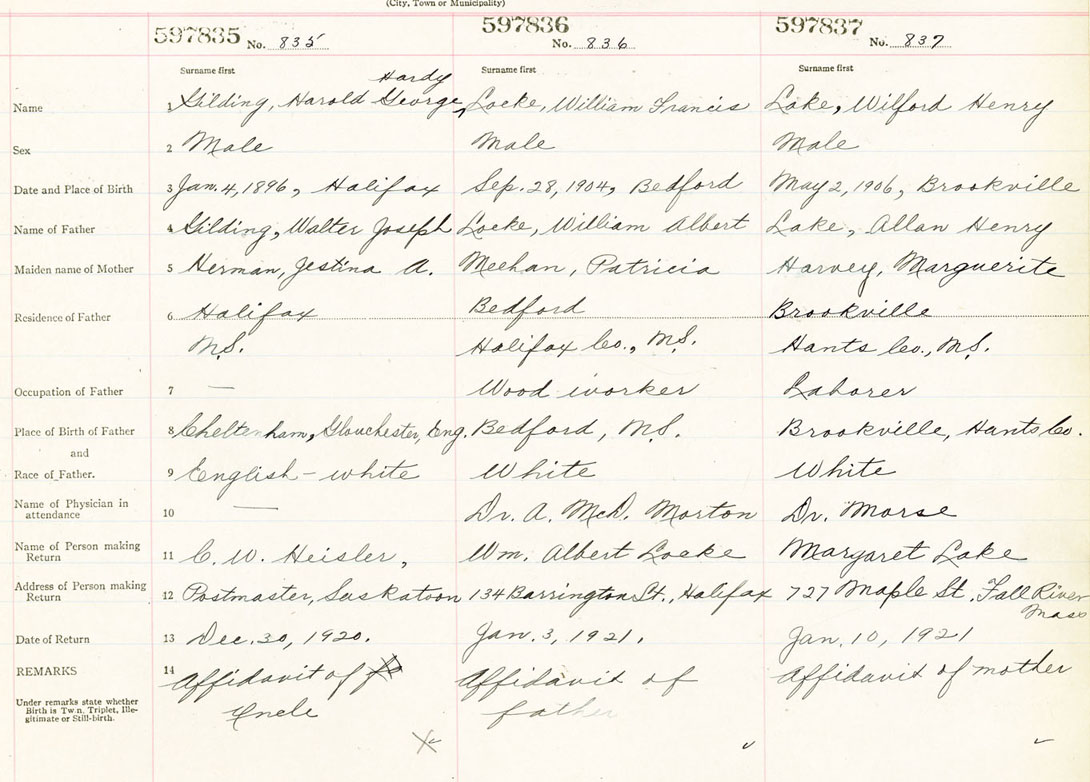 (City, Town or Municipality)
597835 No. 835 597836 No. 836 597837 No. 837
Surname first Surname first Surname first
Hardy
Name 1 Gilding, Harold George, Locke, William Francis Lake, Wilford Henry
Sex 2 Male Male Male
Date and Place of Birth 3 Jan. 4, 1896, Halifax Sep. 28, 1904, Bedford May 2, 1906, Brookville
Name of Father 4 Gilding, Walter Joseph Locke, William Albert Lake, Allan Henry
Maiden name of Mother 5 Herman, Jestina A. Meehan, Patricia Harvey, Marguerite
Residence of Father 6 Halifax Bedford Brookville
N.S. Halifax Co., N.S. Hants Co., N.S.
Occupation of Father 7 — Wood worker Laborer
Place of Birth of Father 8 Cheltenham, Glouchester, Eng. Bedford, N.S. Brookville, Hants Co.
and
Race of Father. 9 English - white White White
Name of Physician in
attendance 10 — Dr. A. McD. Morton Dr. Morse
Name of Person making
Return 11 C. W. Heisler, Wm. Albert Locke Margaret Lake
Address of Person making
Return 12 Postmaster, Saskatoon 134 Barrington St., Halifax 727 Maple St. Fall River
Mass
Date of Return 13 Dec. 30, 1920. Jan. 3, 1921. Jan. 10, 1921
REMARKS 14 Affidavit of Affidavit of Affidavit of mother
Under remarks state whether
Birth is Twin, Triplet, Ille-
gitimate or Still-birth.
Uncle father